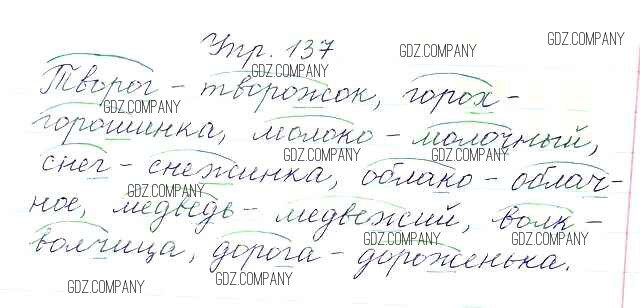 Упр. 137
GDZ.COMPANY
GDZ.COMPANY
GDZ.COMPANY
Творог - творожок, горох -
GDZ.COMPANY
горошинка, молоко - молочный,
GDZ.COMPANY
GDZ.COMPANY
снег - снежинка, облако - облач-
GDZ.COMPANY
ное, медведь - медвежий, волк -
GDZ.COMPANY
GDZ.COMPANY
волчица, дорога - дороженька.
GDZ.COMPANY
GDZ.COMPANY